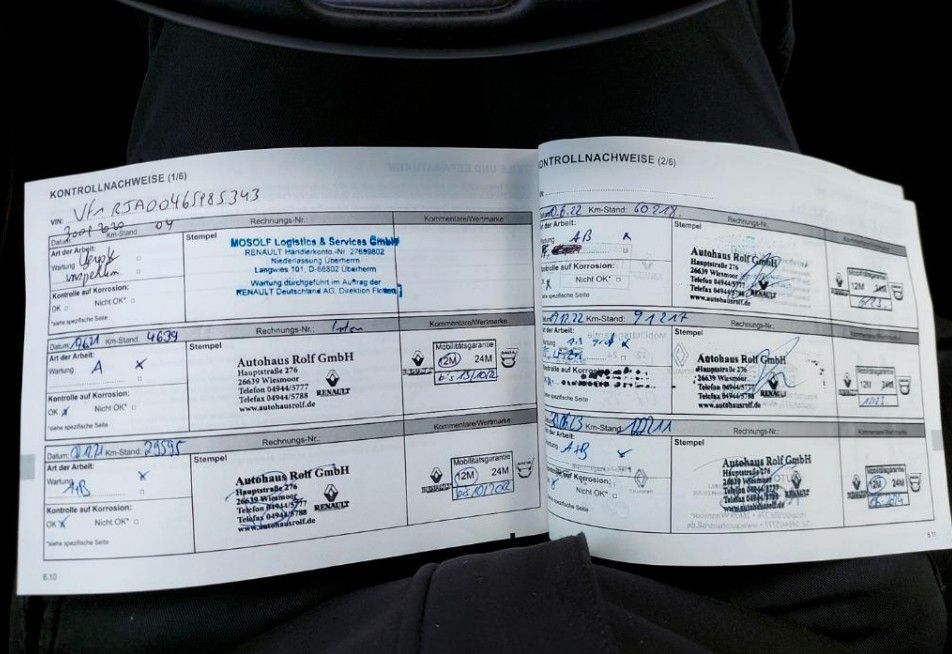 KONTROLLNACHWEISE (1/6)
VIN:
Datum: Km-Stand: 04 Rechnungs-Nr.: Kommentare/Wertmarke
Art der Arbeit:
Wartung
Stempel
MOSOLF Logistics & Services GmbH
RENAULT Händlerkonto.-Nr. 27699802
Niederlassung Überherrn
Langwies 101, D-66802 Überherrn
Wartung durchgeführt im Auftrag der
RENAULT Deutschland AG, Direktion Flotten
Kontrolle auf Korrosion:
OK Nicht OK*
*siehe spezifische Seite
Datum: Km-Stand: 4639 Rechnungs-Nr.: Kommentare/Wertmarke
Art der Arbeit:
Wartung A x
Stempel
Autohaus Rolf GmbH
Hauptstraße 276
26639 Wiesmoor
Telefon 04944/5777
Telefax 04944/5788
www.autohausrolf.de
RENAULT
Mobilitätsgarantie
12M 24M
Kontrolle auf Korrosion:
OK x Nicht OK*
*siehe spezifische Seite
Datum: Km-Stand: 29595 Rechnungs-Nr.: Kommentare/Wertmarke
Art der Arbeit:
Wartung A+B x
Stempel
Autohaus Rolf GmbH
Hauptstraße 276
26639 Wiesmoor
Telefon 04944/5777
Telefax 04944/5788
www.autohausrolf.de
RENAULT
Mobilitätsgarantie
12M 24M
bis 10/2022
Kontrolle auf Korrosion:
OK x Nicht OK*
*siehe spezifische Seite
6.10
KONTROLLNACHWEISE (2/6)
Km-Stand: 60218 Rechnungs-Nr.: Kommentare/Wertmarke
Art der Arbeit:
Wartung AB x
Stempel
Autohaus Rolf GmbH
Hauptstraße 276
26639 Wiesmoor
Telefon 04944/5777
Telefax 04944/5788
www.autohausrolf.de
RENAULT
Mobilitätsgarantie
12M 24M
6/23
Kontrolle auf Korrosion:
Nicht OK*
siehe spezifische Seite
Km-Stand: 91217 Rechnungs-Nr.: Kommentare/Wertmarke
Art der Arbeit:
Stempel
Autohaus Rolf GmbH
Hauptstraße 276
26639 Wiesmoor
Telefon 04944/5777
Telefax 04944/5788
www.autohausrolf.de
RENAULT
Mobilitätsgarantie
12M 24M
Kontrolle auf Korrosion:
siehe spezifische Seite
Km-Stand: Rechnungs-Nr.: Kommentare/Wertmarke
Art der Arbeit:
Wartung A+B
Stempel
Autohaus Rolf GmbH
Hauptstraße 276
26639 Wiesmoor
Telefon 04944/5777
Telefax 04944/5788
www.autohausrolf.de
RENAULT
Mobilitätsgarantie
12M 24M
Kontrolle auf Korrosion:
Nicht OK*
siehe spezifische Seite
6.11